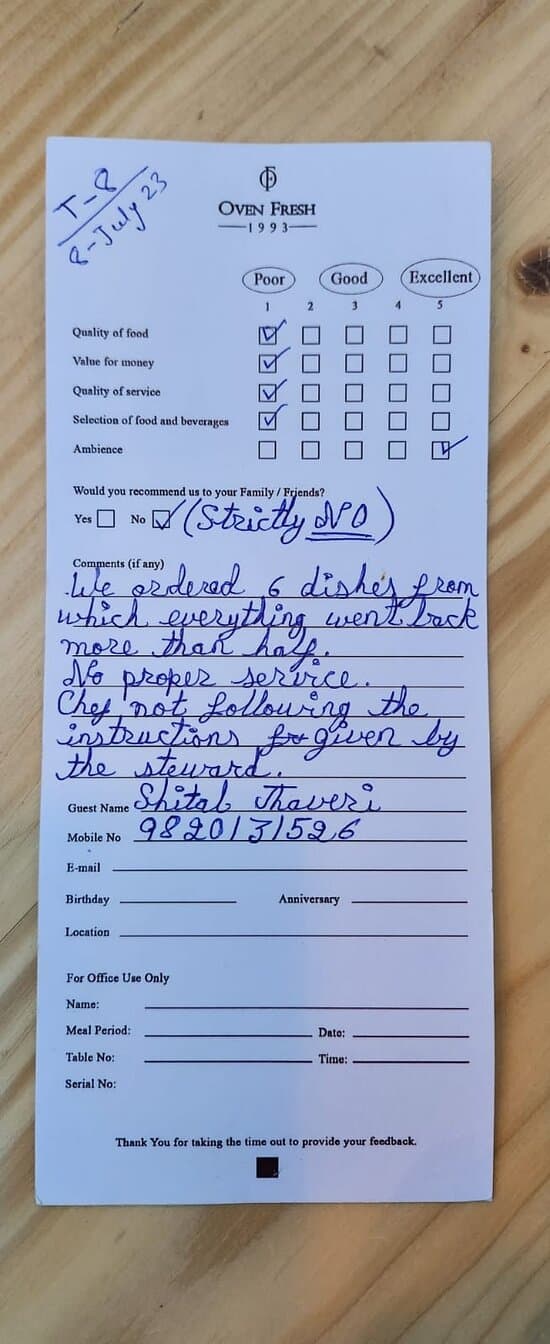 T-8
8-July 23
OVEN FRESH
1993
Poor Good Excellent
1 2 3 4 5
Quality of food
Value for money
Quality of service
Selection of food and beverages
Ambience
Would you recommend us to your Family / Friends?
Yes No (Strictly NO)
Comments (if any)
We ordered 6 dishes from
which everything went back
more than half.
No proper service.
Chef not following the
instructions given by
the steward.
Guest Name Shital Jhaveri
Mobile No 9820131526
E-mail
Birthday Anniversary
Location
For Office Use Only
Name:
Meal Period: Date:
Table No: Time:
Serial No:
Thank You for taking the time out to provide your feedback.